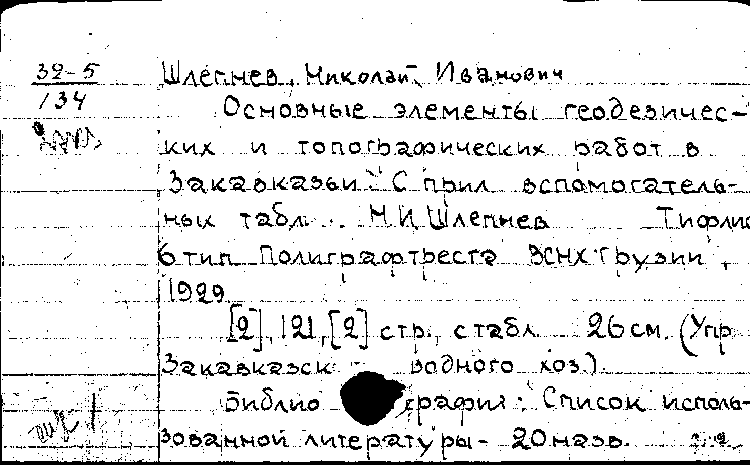 32-5
134
Шлепнев, Николай Иванович
Основные элементы геодезичес-
ких и топографических работ в
Закавказьи. С прил. вспомогатель-
ных табл. Н.И. Шлепнев Тифлис
6 тип. Полиграфтреста ВСНХ Грузии,
1929
[2], 121, [2] стр., с табл. 26 см. (Упр.
Закавказск. водного хоз.).
Библиография: Список исполь-
зованной литературы - 20 назв.